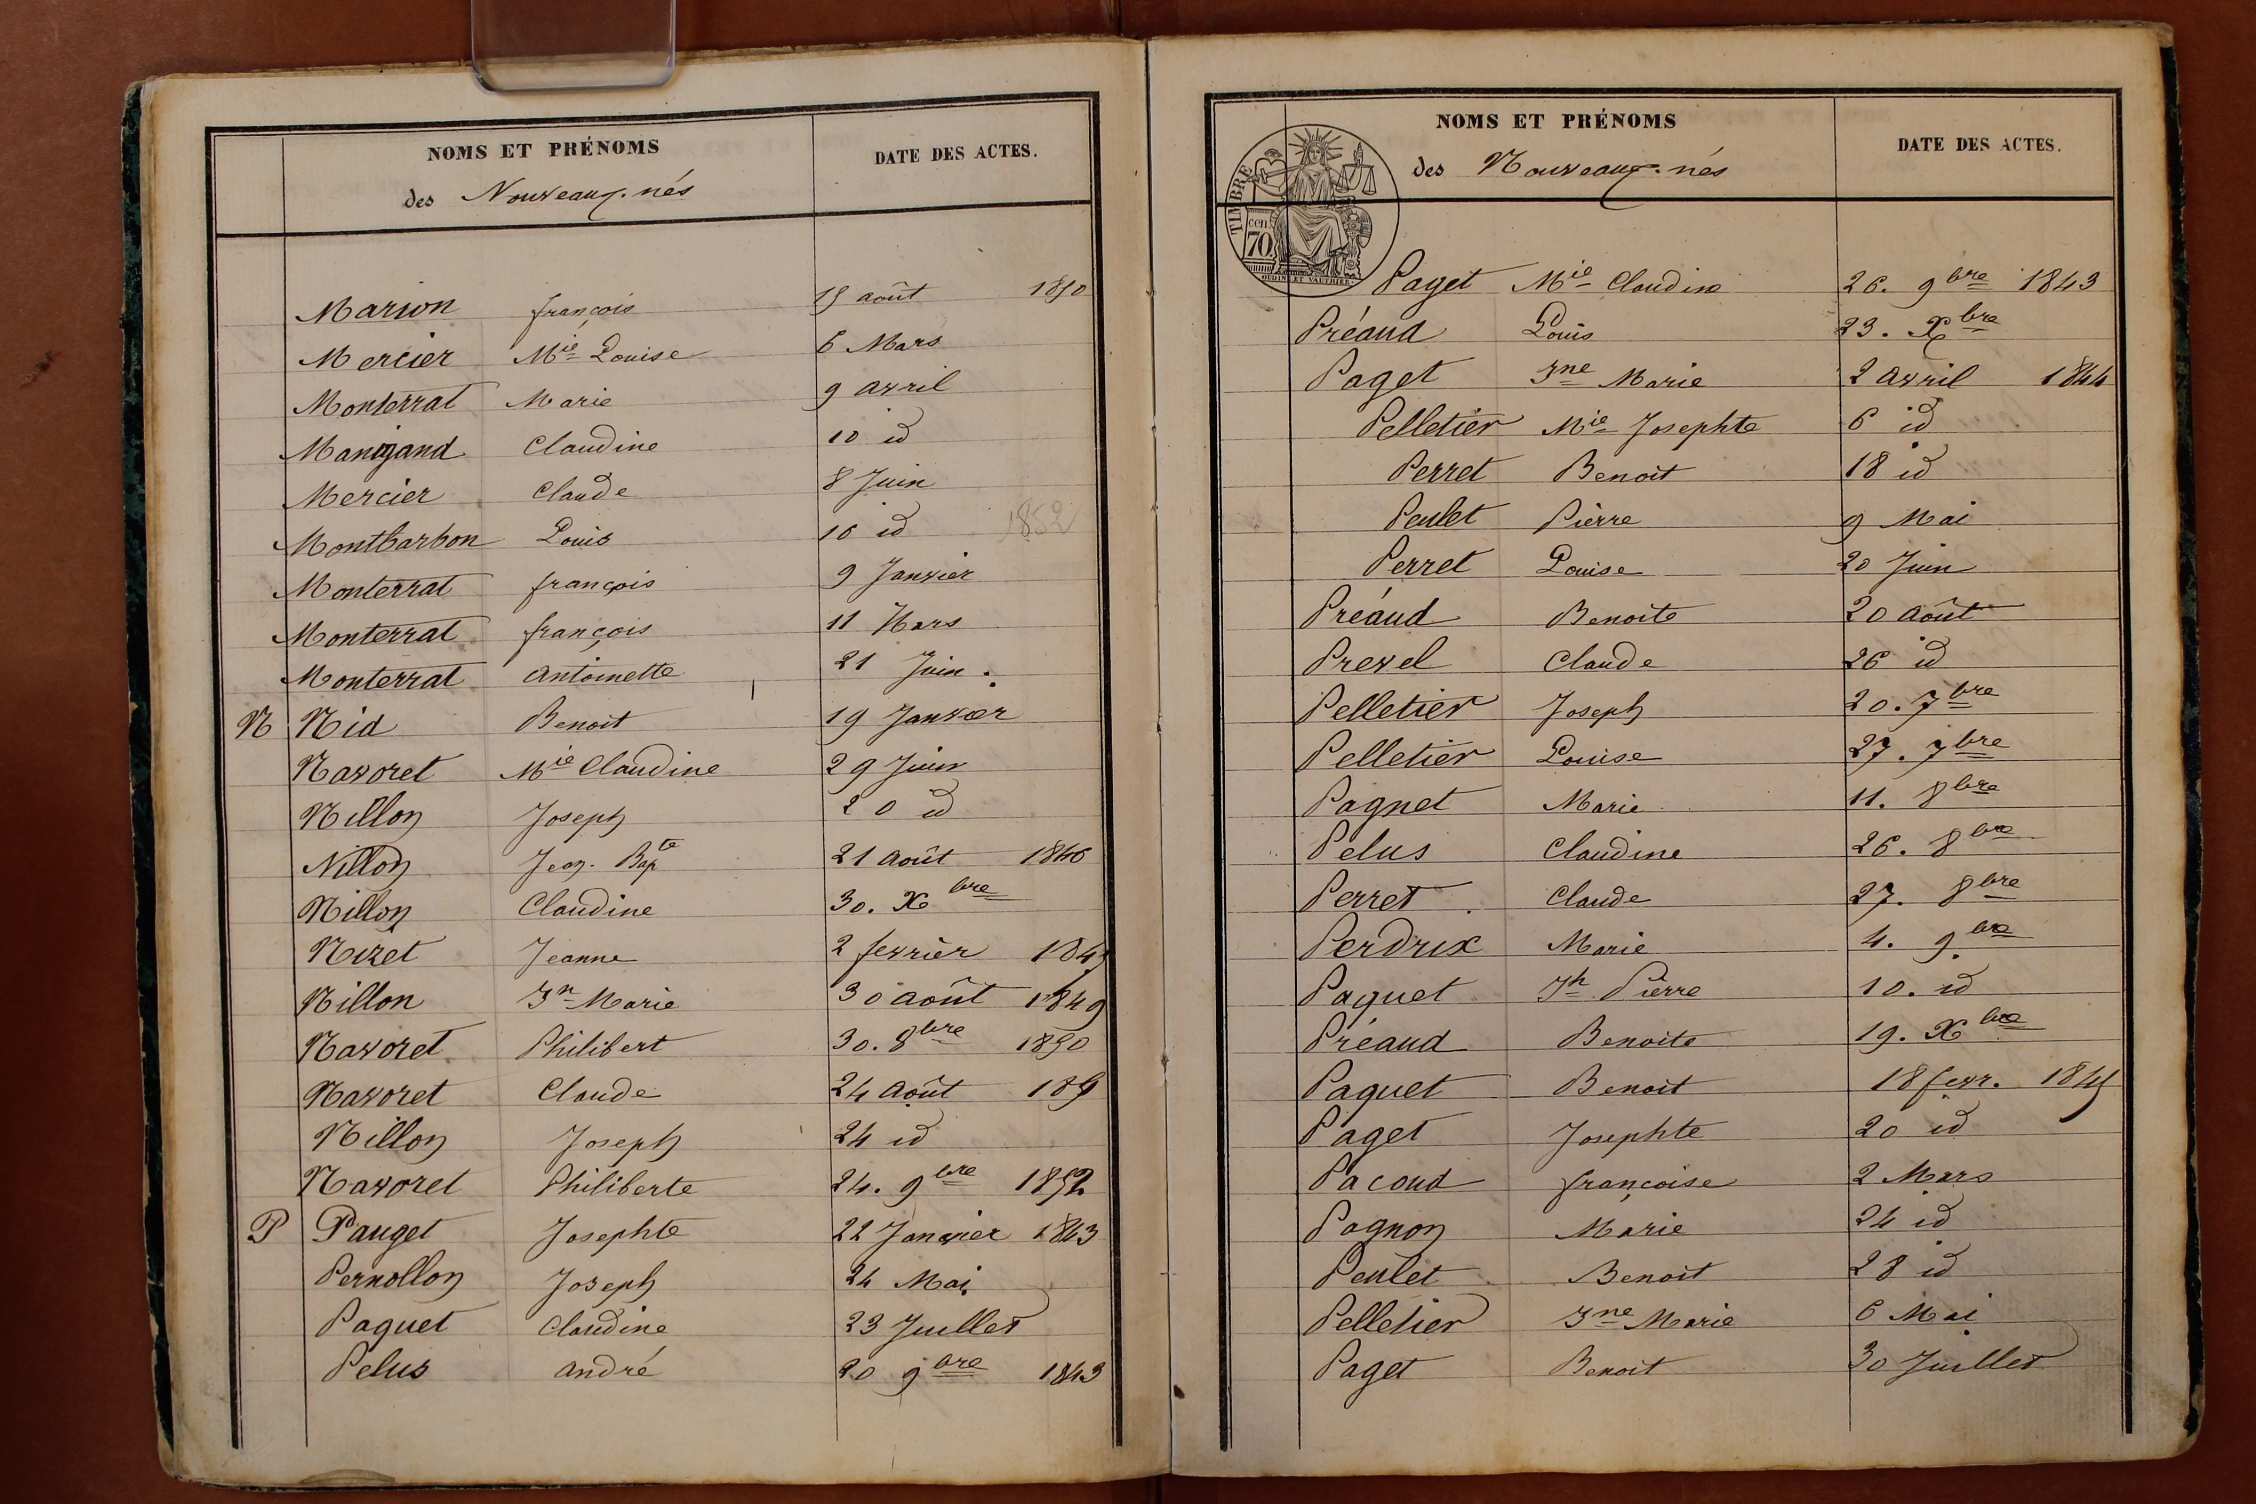 NOMS ET PRÉNOMS
des Nouveaux-nés
DATE DES ACTES.
Marion françois 15 août 1850
Mercier Mie Louise 6 Mars
Monterrat Marie 9 avril
Manigand Claudine 10 id
Mercier Claude 8 Juin
Montbarbon Louis 10 id 1852
Monterrat françois 9 Janvier
Monterrat françois 11 Mars
Monterrat antoinette 21 Juin.
N Nid Benoit 19 Janvier
Navoret Mie Claudine 29 Juin
Nillon Joseph 20 id
Nillon Jean-Bapte 21 août 1846
Nillon Claudine 30. Xbre
Nizet Jeanne 2 fevrier
Nillon Jn Marie 30 août 1849
Navoret Philibert 30. 8bre 1850
Navoret Claude 24 août
Nillon Joseph 24 id
Navoret Philiberte 24. 9bre 1852
P Pauget Josephte 22 Janvier 1843
Pernollon Joseph 24 Mai
Paquet Claudine 23 Juillet
Pelus andré 20 9bre 1843
NOMS ET PRÉNOMS
des Nouveaux-nés
DATE DES ACTES.
TIMBRE
cen.
70.
OUDINÉ ET VAUTHIER
Paget Mie Claudine 26. 9bre 1843
Préaud Louis 23. Xbre
Paget Jne Marie 2 avril 1844
Pelletier Mie Josephte 6 id
Perret Benoit 18 id
Peulet Pierre 9 Mai
Perret Louise 20 Juin
Préaud Benoite 20 août
Prevel Claude 26 id
Pelletier Joseph 20. 7bre
Pelletier Louise 27. 7bre
Pagnet Marie 11. 8bre
Pelus Claudine 26. 8bre
Perret Claude 27. 8bre
Perdrix Marie 4. 9bre
Paquet Jh Pierre 10. id
Préaud Benoite 19. Xbre
Paquet Benoit 18 fevr. 1845
Paget Josephte 20 id
Pacoud françoise 2 Mars
Pognon Marie 24 id
Peulet Benoit 28 id
Pelletier Jne Marie 6 Mai
Paget Benoit 30 Juillet